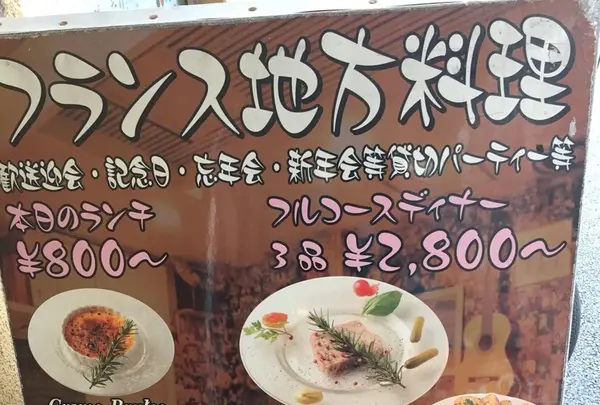 フランス地方料理
歓送迎会・記念日・忘年会・新年会等貸切パーティー等
本日のランチ
¥800〜
フルコースディナー
3品 ¥2,800〜